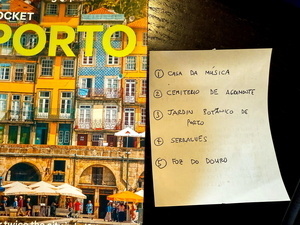 POCKET
PORTO
① CASA DA MÚSICA
② CEMITÉRIO DE AGRAMONTE
③ JARDIM BOTÂNICO DE
PORTO
④ SERRALVES
⑤ FOZ DO DOURO
twice the city